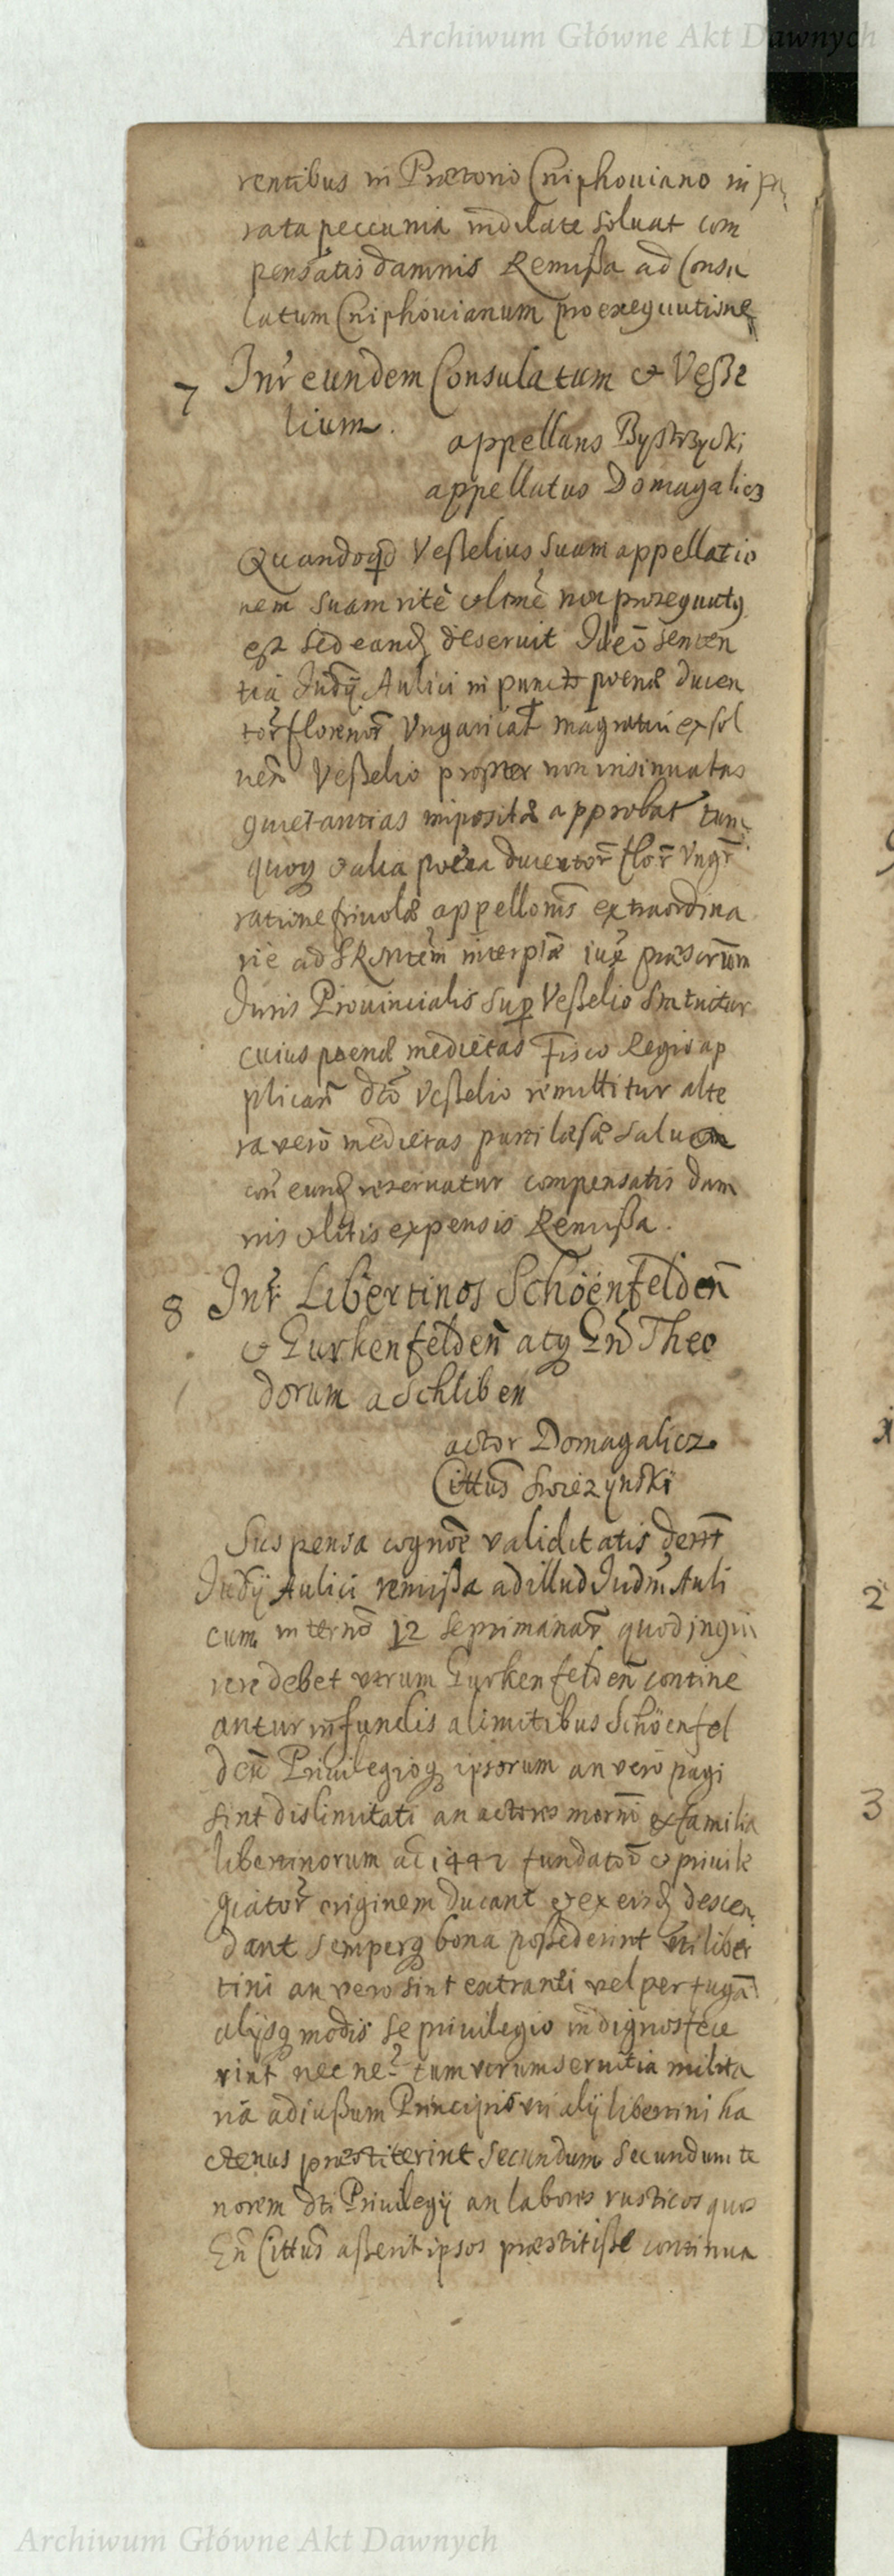 Archiwum Główne Akt Dawnych
rentibus in Prætorio Cniphouiano in
rata peccunia indilate soluat com
pensatis damnis Remißa ad Consu
latum Cniphouianum pro exequutione
7 Inr̃ eundem Consulatum & Veße
lium.
appellans Bystrzycki
appellatus Domagalicz
Quandoqd Veßelius suam appellatio
nem suam ritè & ltmè non prosequutq
est sed eandq deseruit Ideo senten
tia Iudỹ Aulici in puncto pœnæ ducen
tor̃ florenor̃ Vngarical magratui exsol
nen̄ Veßelio propter non insinuatas
quietantias impositæ approbat tum
quoq & alia pœna ducentor̃ flor̃ Vngr̃
ratione friuolæ appellonis extraordina
rie ad SRMtem interptæ iux præscrtum
Iuris Prouincialis sup Veßelio statuitur
cuius pœnæ medietas Fisco Regio ap
plican̄ dcto Veßelio remittitur alte
ra vero medietas parti læsæ salua
con̄ eundq reseruatur compensatis dam
nis & litis expensis Remißa.
8 Inr̃ Libertinos Schöenfelden̄
& Gurkenfelden̄ atq Gn̄ Theo
dorum a Schliben
actor Domagalicz
Cittus Swiezynski
Suspensa cognoe validitatis decrt
Iudỹ Aulici remißa ad illud Iudm Auli
cum in termo 12 septimanar̃ quod inqui
rere debet vtrum Gurkenfelden̄ contine
antur in fundis a limitibus Schöenfel
den̄ Priuilegioq ipsorum an vero pagi
sint dislimitati an actores morni ex familia
libertinorum ac 1442 fundator̃ & priuile
giator̃ originem ducant & ex eisdq descen
dant semperq bona poßederint vti liber
tini an vero sint extranei vel per fugam
alijsq modis se priuilegio indignos fece
rint nec ne? tum vtrum seruitia milita
ria ad iußum Principis vti alij libertini ha
ctenus præstiterint secundum secundum te
norem dti Priuilegij an labores rusticos quos
Gn̄ Cittus aßerit ipsos præstitiße continua
Archiwum Główne Akt Dawnych